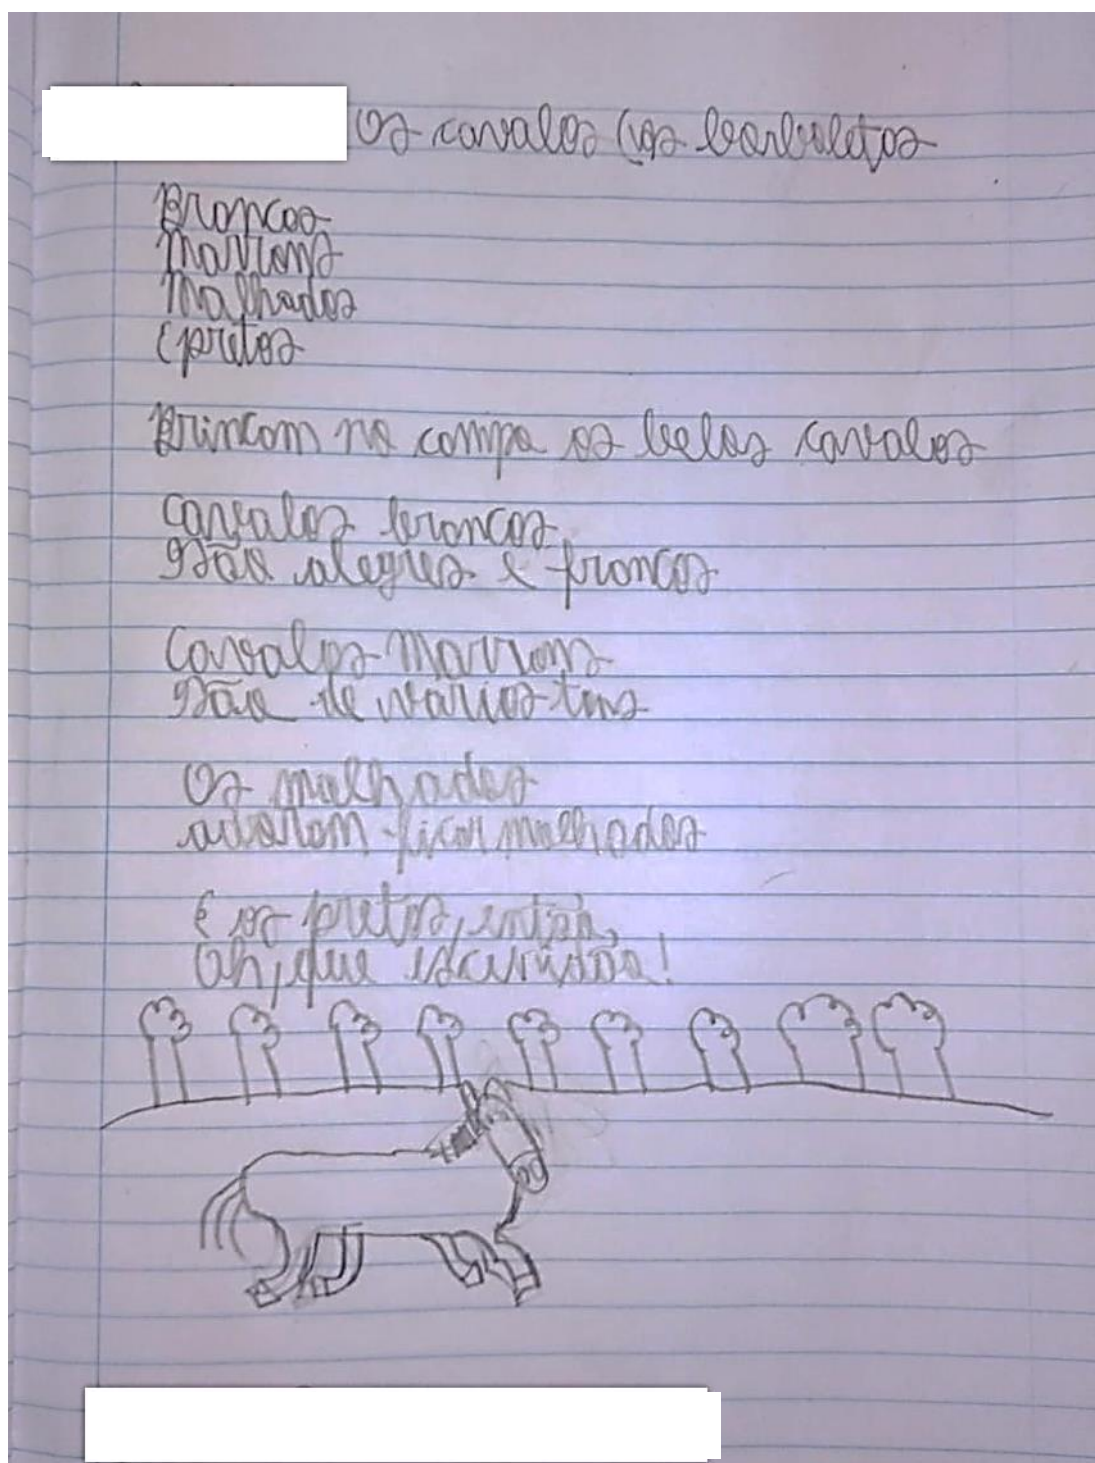 Os cavalos (os borboletos
Brancos
Marrons
Malhados
E pretos
Brincam no campo os belos cavalos
Cavalos brancos
São alegres e francos
Cavalos Marrons
São de varios tons
Os malhados
adoram ficar malhados
E os pretos, então,
Oh, que escuridão!